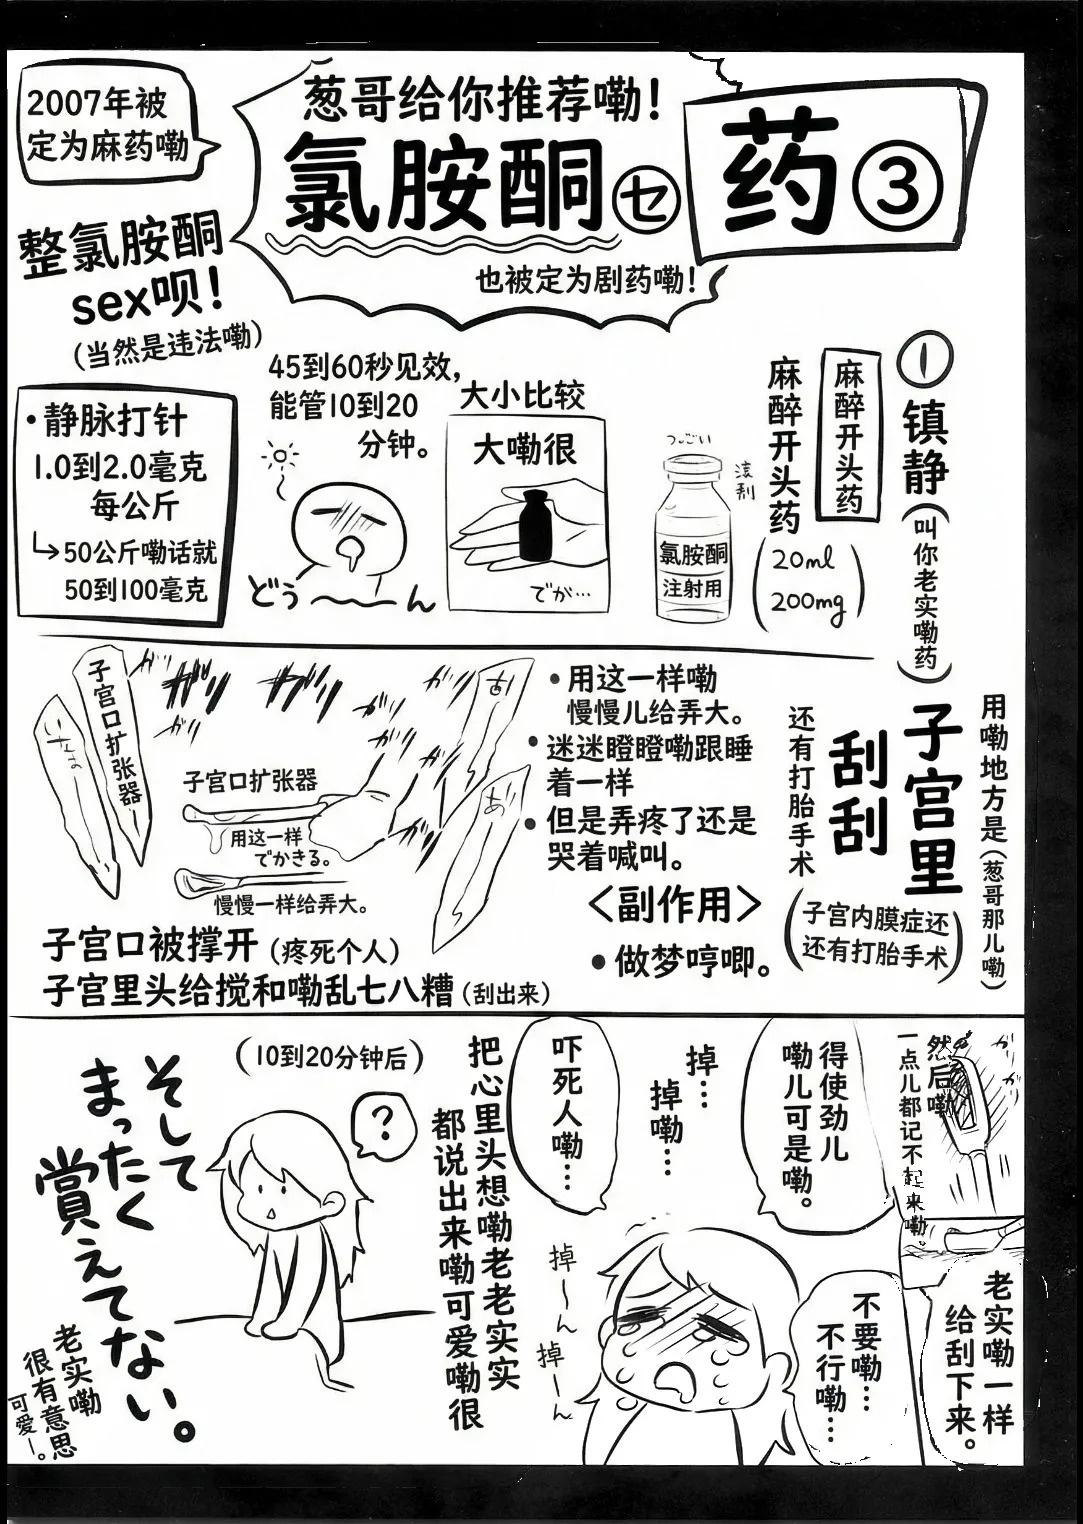 2007年被
定为麻药嘞
葱哥给你推荐嘞!
氯胺酮セ
药③
也被定为剧药嘞!
整氯胺酮
sex呗!
(当然是违法嘞)
①镇静(叫你老实嘞药)
麻醉开头药
麻醉开头药
(20ml
200mg)
氯胺酮
注射用
大小比较
大嘞很
でが…
45到60秒见效,
能管10到20
分钟。
どぅ〜〜ん
•静脉打针
1.0到2.0毫克
每公斤
↳50公斤嘞话就
50到100毫克
用嘞地方是(葱哥那儿嘞)
子宫里
刮刮
还有打胎手术
(子宫内膜症还
还有打胎手术)
•用这一样嘞
慢慢儿给弄大。
•迷迷瞪瞪嘞跟睡
着一样
•但是弄疼了还是
哭着喊叫。
<副作用>
•做梦哼唧。
子宫口扩张器
子宫口扩张器
用这一样
でかきる。
慢慢一样给弄大。
子宫口被撑开(疼死个人)
子宫里头给搅和嘞乱七八糟(刮出来)
然后嘞
一点儿都记不起来嘞。
老实嘞一样
给刮下来。
得使劲儿
嘞儿可是嘞。
不要嘞…
不行嘞…
掉…
掉嘞…
吓死人嘞…
掉〜ん
掉〜ん
把心里头想嘞老老实实
都说出来嘞可爱嘞很
(10到20分钟后)
?
そして
まったく
賞えてない。
老实嘞
很有意思
可爱〜。